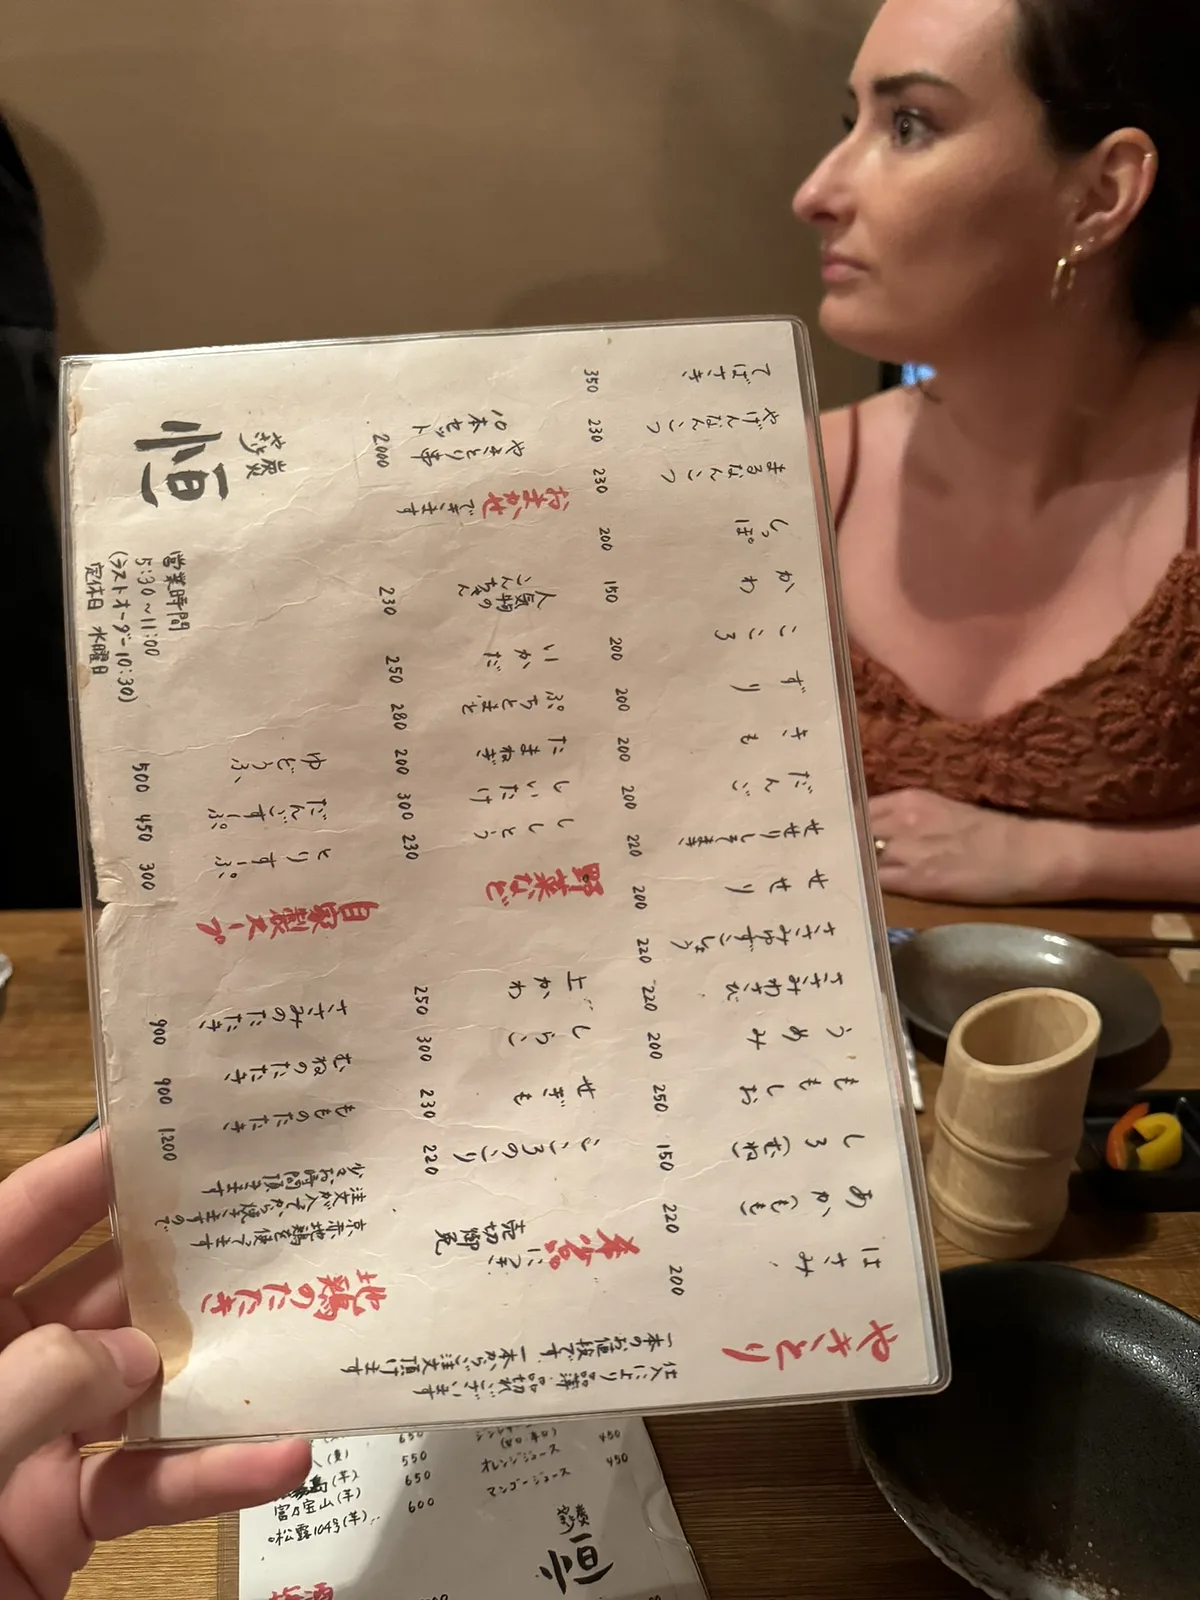 やきとり
はさみ 200
あか(もも) 220
しろ(むね) 150
ももしお 250
うめみ 200
ささみわさび 220
ささみゆずこしょう 220
せせり 200
せせりしそまき 220
だんご 200
きも 200
ずり 200
こころ 200
かわ 150
しっぽ 200
まるなんこつ 230
やげんなんこつ 230
てばさき 350
仕入により品薄・品切れございます
一本のお値段です。一本からご注文頂けます
希少品につき、
売切御免
こころのこり 220
せぎも 230
しらこ 300
上がわ 250
野菜など
ししとう 230
しいたけ 300
たまねぎ 200
ぷちとまと 280
いかだ 250
人気物の
こんちゃん 230
おまかせできます
やきとり
10本セット 2000
地鶏のたたき
京赤地鶏を使ってます
注文が入ってから焼きますので
少々お時間頂きます
もものたたき 1200
むねのたたき 900
ささみのたたき 900
自家製スープ
とりすーぷ 300
だんごすーぷ 450
ゆどうふ 500
営業時間
5:30〜11:00
(ラストオーダー10:30)
定休日 水曜日
恒
650
(麦) 550
(芋) 650
富乃宝山(芋) 600
松露104号(芋)
(甘口・辛口)
オレンジジュース 450
マンゴージュース 450
恒